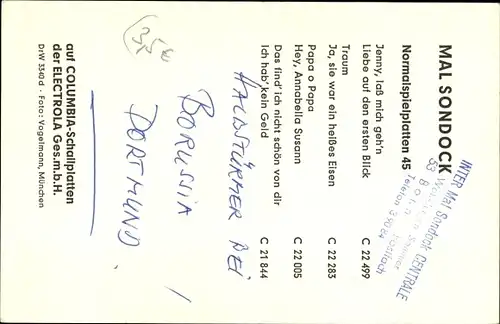 MAL SONDOCK
Normalspielplatten 45
Jenny, laß mich geh'n
Liebe auf den ersten Blick C 22 499
Traum
Ja, sie war ein heißes Eisen C 22 283
Papa o Papa
Hey, Annabella Susann C 22 005
Das find' ich nicht schön von dir
Ich hab' kein Geld C 21 844
auf COLUMBIA-Schallplatten
der ELECTROLA Ges.m.b.H.
DrW 3540 d · Foto: Vogelmann, München
INTER Mal Sondock CENTRALE
53 Bonn
Postfach
Telefon
HALBSTÜRMER BEI
BORUSSIA
DORTMUND !
3,5